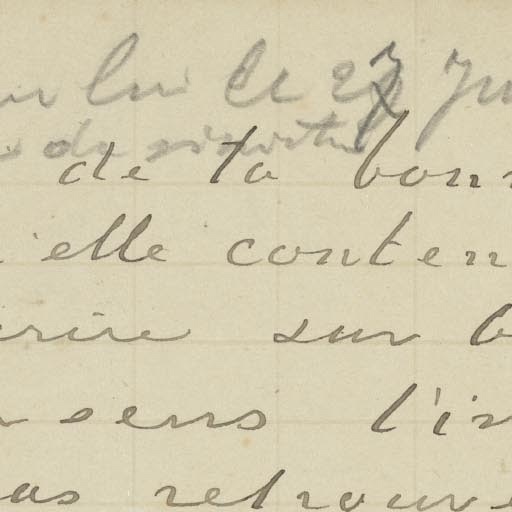 lui le 27
de ta bonn
'elle conten
crire sur
sens l'in
as retrouve